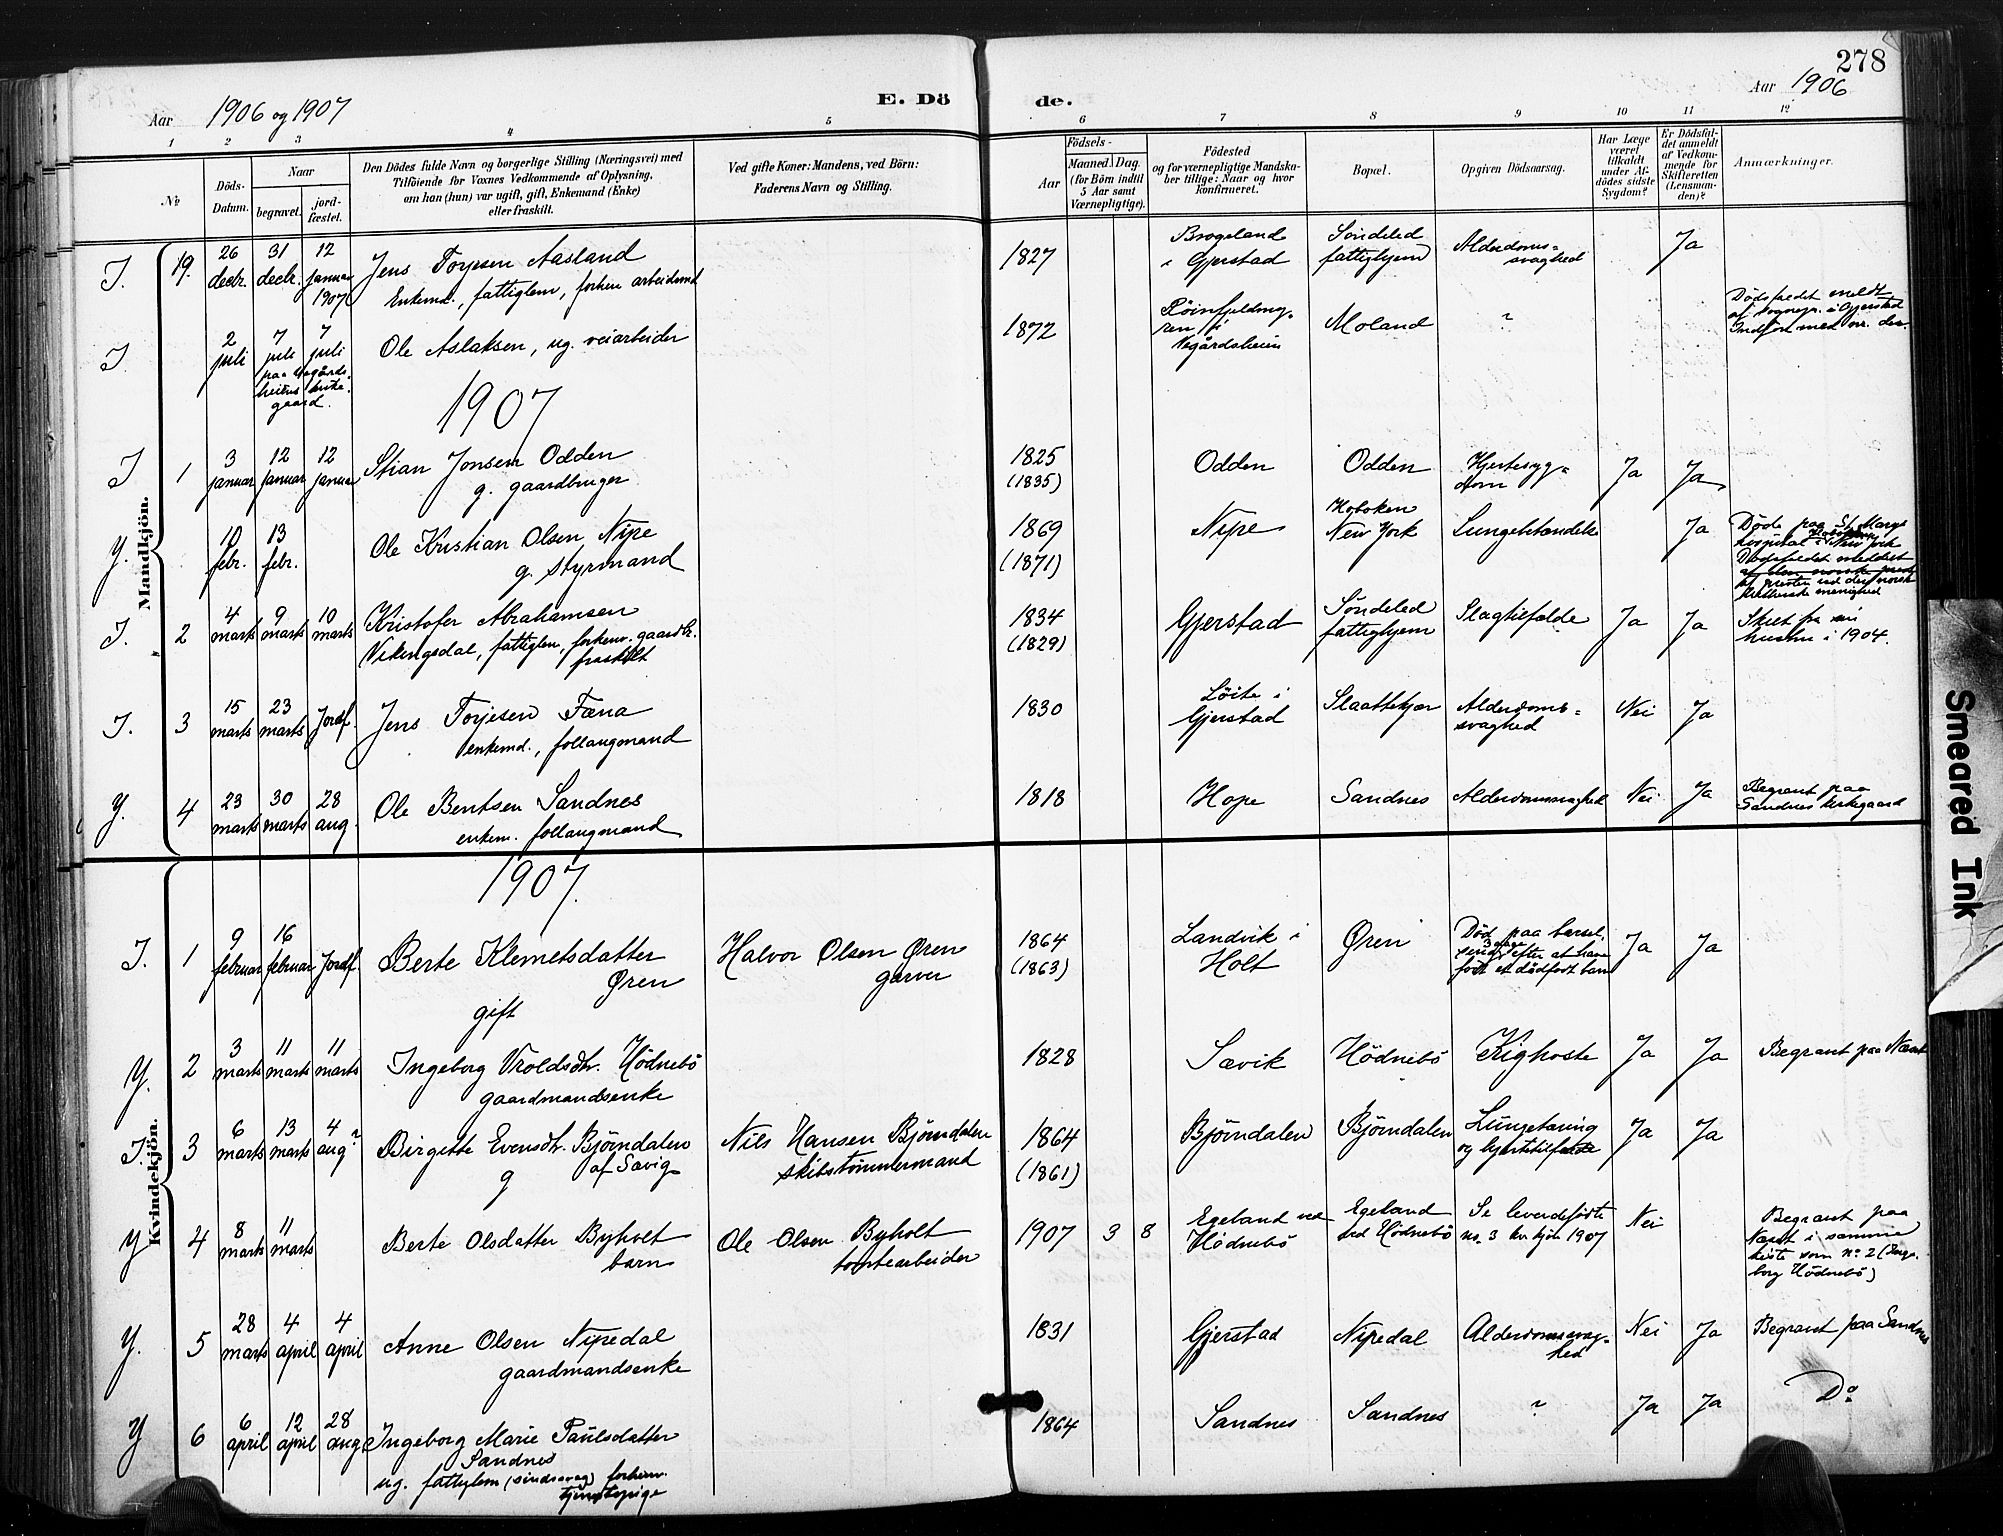 278
Aar 1906 og 1907
E. Dö
de.
Aar 1906
1 2 3 4 5
6 7 8 9 10 11 12
№
Döds-
Datum.
Naar
begravet.
jord-
fæstet.
Den Dödes fulde Navn og borgerlige Stilling (Næringsvei) med
Tilföiende for Voxnes Vedkommende af Oplysning,
om han (hun) var ugift, gift, Enkemand (Enke)
eller fraskilt.
Ved gifte Koner: Mandens, ved Börn:
Faderens Navn og Stilling.
Födsels-
Aar
Maaned. Dag.
(for Börn indtil
5 Aar samt
Værnepligtige).
Födested
og for værnepligtige Mandska-
ber tillige: Naar og hvor
konfirmeret.
Bopæl.
Opgiven Dödsaarsag.
Har Læge
været
tilkaldt
under Af-
dödes sidste
Sygdom?
Er Dödsfal-
det anmeldt
af Vedkom-
mende for
Skifteretten
(Lensman-
den)?
Anmærkninger.
Mandkjön.
I. 19. 26 decbr. 31 decbr. 12 januar 1907
Jens Torjesen Aasland
Enkemd., fattiglem, forhen arbeidsmd
1827
Brogeland
i Gjerstad
Söndeled
fattighjem
Alderdoms=
svaghed
Ja
I 2 juli 7 juli 7 juli
paa Vegårds-
heiens kirke-
gaard.
Ole Aslaksen, ug. veiarbeider
1872
Vegårdsheien
Moland
?
Dödsfaldet meldt
af sognepr. i Gjerstad
1907
I 1 3 januar 12 januar 12 januar
Stian Jonsen Odden
g. gaardbruger
1825
(1835)
Odden
Odden
Hjertesyg=
dom
Ja
Ja
Y. 10 febr. 13 febr.
Ole Kristian Olsen Nipe
g. styrmand
1869
(1871)
Nipe
Hoboken
New York
Lungebetændelse
Ja
Döde paa St. Marys
hospital i Hoboken New York
Dödsfaldet meddelt
af den norske prest
af presten ved den norsk
lutherske menighed
I. 2 4 marts 9 marts 10 marts
Kristofer Abrahamsen
Vikingsdal, fattiglem, forhenv. gaardbr.
fraskilt
1834
(1829)
Gjerstad
Söndeled
fattighjem
Slagtilfælde
Ja
Ja
Skilt fra sin
hustru i 1904.
I. 3 15 marts 23 marts Jordf.
Jens Torjesen Fæna
enkemd., follaugsmand
1830
Löite i
Gjerstad
Slaattekjær
Alderdoms=
svaghed
Nei
Ja
Y. 4 23 marts 30 marts 28 aug.
Ole Bentsen Sandnes
enkem. follaugsmand
1818
Hope
Sandnes
Alderdomssvaghed
Nei
Ja
Begravet paa
Sandnes kirkegaard
Kvindekjön.
1907.
I. 1 9 februar 16 februar Jordf.
Berte Klemetsdatter
Øren
gift
Halvor Olsen Øren
garver
1864
(1863)
Landvik i
Holt
Øren
Död paa barsel,
3 dage
efter at have
födt et dödfödt barn
Ja
Ja
Y. 2 3 marts 11 marts 11 marts
Ingeborg Vroldsdtr. Hödnebö
gaardmandsenke
1828
Sævik
Hödnebö
Kighoste
Ja
Ja
Begravet paa Næset
I. 3 6 marts 13 marts 4 aug?
Birgette Evensdtr. Björndalen
af Savig
g
Nils Hansen Björndalen
skibstömmermand
1864
(1861)
Björndalen
Björndalen
Lungetæring
og hjertetilfælde
Ja
Ja
Y 4 8 marts 11 marts
Berte Olsdatter Byholt
barn
Ole Olsen Byholt
tomtearbeider
1907 3 8
Egeland ved
Hödnebö
Egeland
ved Hödnebö
Se levendefödte
no. 3 kv. kjön 1907
Nei
Begravet paa
Næset i samme
kiste som No 2 (Inge-
borg Hödnebö)
Y. 5 28 marts 4 april 4 april
Anne Olsen Nipedal
gaardmandsenke
1831
Gjerstad
Nipedal
Alderdomssvag-
hed
Nei
Ja
Begravet paa Sandnes
Y 6 6 april 12 april 28 aug
Ingeborg Marie Paulsdatter
Sandnes
ug. fattiglem (sindssvag) forhenv.
tjenestepige
1864
Sandnes
Sandnes
?
Ja
Ja
Do
Smeared Ink